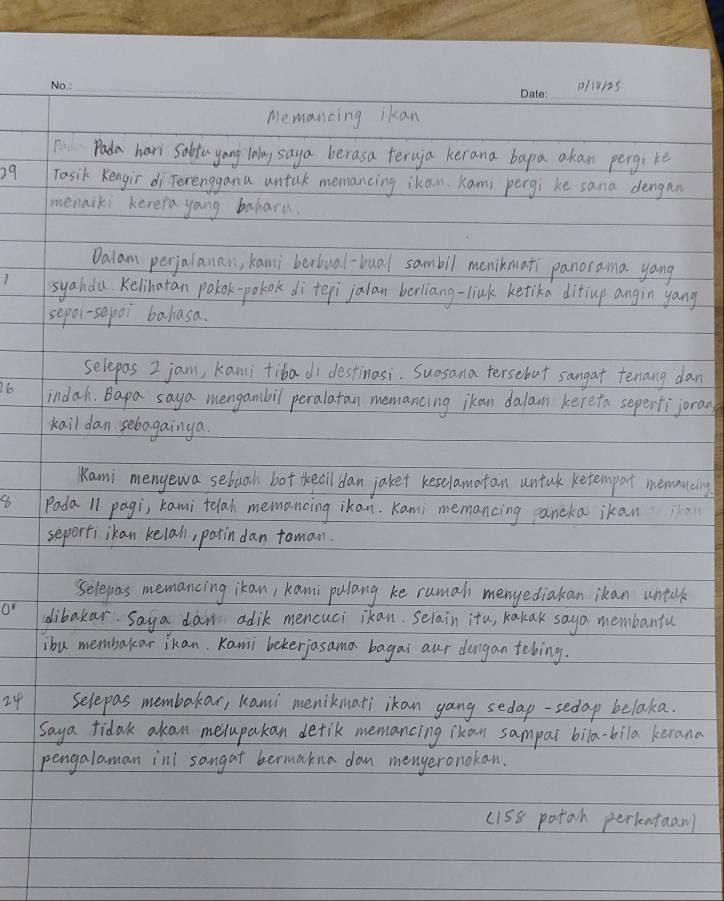 No.:
Date: 12/10/25
Memancing ikan
Pada hari Sabtu yang lalu, saya berasa teruja kerana bapa akan pergi ke
29 Tasik Kengir di Terengganu untuk memancing ikan. Kami pergi ke sana dengan
menaiki kereta yang baharu.
Dalam perjalanan, kami berbual-bual sambil menikmati panorama yang
1 syahdu. Kelihatan pokok-pokok di tepi jalan berliang-liuk ketika ditiup angin yang
sepoi-sepoi bahasa.
Selepas 2 jam, kami tiba di destinasi. Suasana tersebut sangat tenang dan
26 indah. Bapa saya mengambil peralatan memancing ikan dalam kereta seperti joran,
kail dan sebagainya.
Kami menyewa sebuah bot kecil dan jaket keselamatan untuk ketempat memancing.
8 Pada 11 pagi, kami telah memancing ikan. Kami memancing aneka ikan
seperti ikan kelah, patin dan toman.
Selepas memancing ikan, kami pulang ke rumah menyediakan ikan untuk
0 dibakar. Saya dan adik mencuci ikan. Selain itu, kakak saya membantu
ibu membakar ikan. Kami bekerjasama bagai aur dengan tebing.
24 Selepas membakar, kami menikmati ikan yang sedap-sedap belaka.
Saya tidak akan melupakan detik memancing ikan sampai bila-bila kerana
pengalaman ini sangat bermakna dan menyeronokan.
(158 patah perkataan)